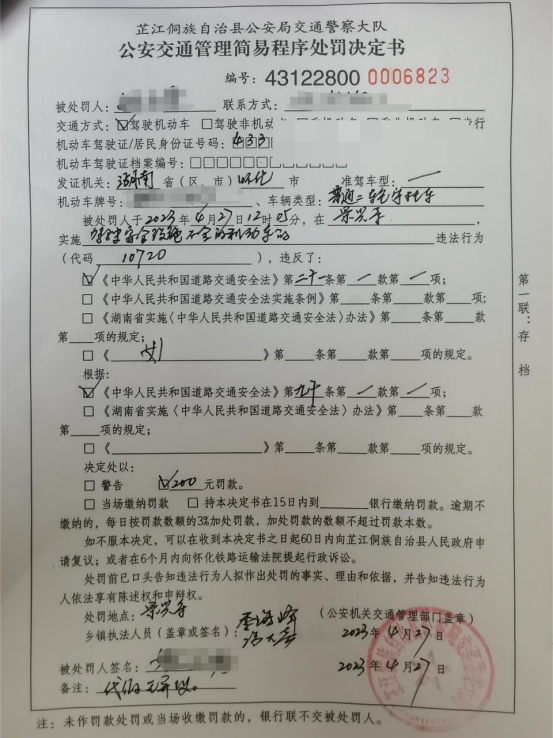 芷江侗族自治县公安局交通警察大队
公安交通管理简易程序处罚决定书
编号：43122800 0006823
被处罚人： 联系方式：
交通方式：☑驾驶机动车 □驾驶非机动
机动车驾驶证/居民身份证号码：433
机动车驾驶证档案编号：□□□□□□□□□□□□
发证机关：湖南省（区、市）怀化市 准驾车型：一
机动车牌号： 、车辆类型：普通二轮摩托车
被处罚人于2023年4月27日12时05分，在 ，
实施驾驶安全设施不全的机动车的违法行为
（代码10720），违反了：
☑《中华人民共和国道路交通安全法》第二十一条第／款第／项；
□《中华人民共和国道路交通安全法实施条例》第 条第 款第 项；
□《湖南省实施〈中华人民共和国道路交通安全法〉办法》第 条第 款
第 项的规定；
□《 》第 条第 款第 项的规定。
根据：
☑《中华人民共和国道路交通安全法》第九十条第／款第／项；
□《湖南省实施〈中华人民共和国道路交通安全法〉办法》第 条第 款
第 项的规定；
□《 》第 条第 款第 项的规定。
决定处以：
□ 警告 ☑200元罚款。
□ 当场缴纳罚款 □ 持本决定书在15日内到 银行缴纳罚款。逾期不
缴纳的，每日按罚款数额的3%加处罚款，加处罚款的数额不超过罚款本数。
如不服本决定，可以在收到本决定书之日起60日内向芷江侗族自治县人民政府申
请复议；或者在6个月内向怀化铁路运输法院提起行政诉讼。
处罚前已口头告知违法行为人拟作出处罚的事实、理由和依据，并告知违法行为
人依法享有陈述权和申辩权。
处罚地点： （公安机关交通管理部门盖章）
乡镇执法人员（盖章或签名）： 2023年4月27日
被处罚人签名： 2023年4月27日
备注：
第一联：存档
注：未作罚款处罚或当场收缴罚款的，银行联不交被处罚人。